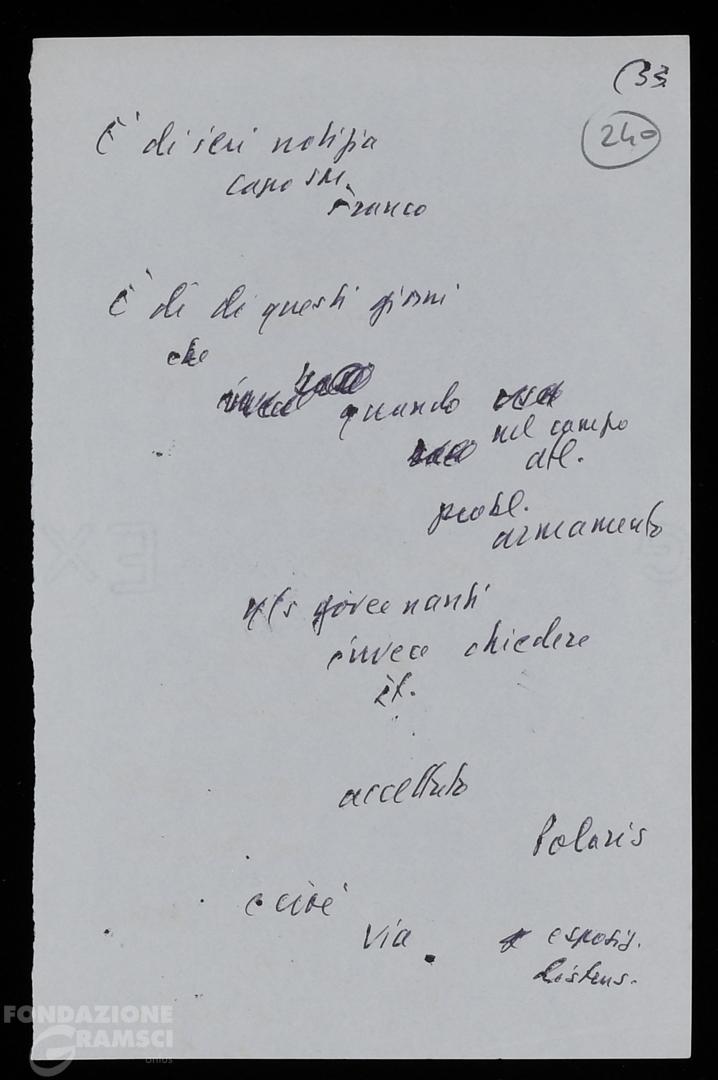 (33
240
È di ieri notizia
capo SM.
Franco
È di di questi giorni
che
invece
quando
nel campo
atl.
probl.
armamento
ns governanti
invece chiedere
accettato
Polaris
e cioè
via
esposiz.
distrus.
FONDAZIONE
GRAMSCI
onlus